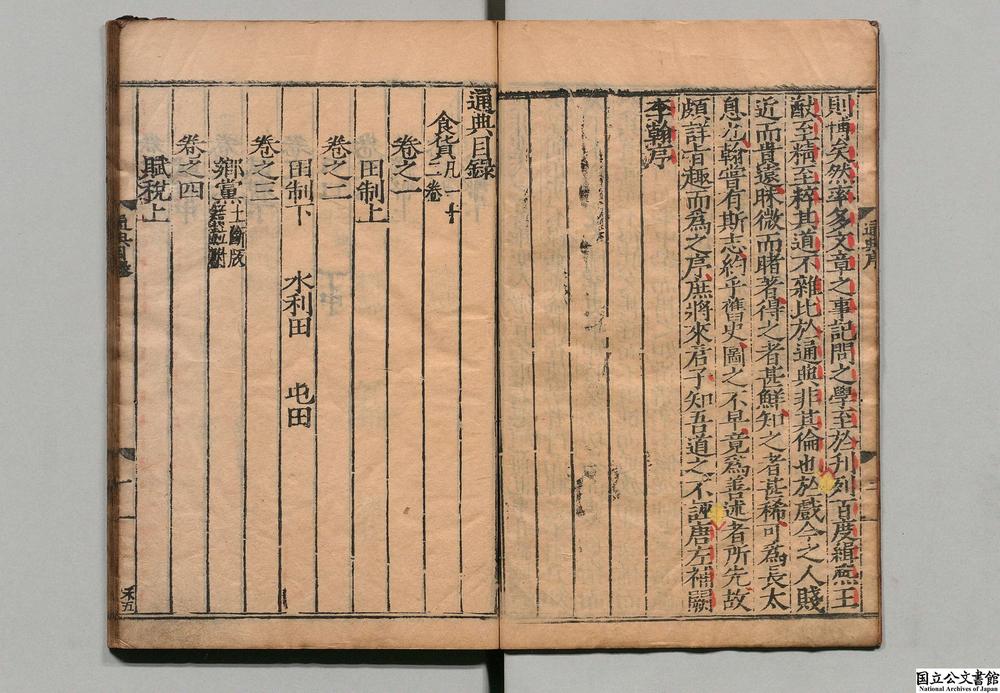 則博矣然率多文章之事記問之學至於刋列百度緝熈王
猷至精至粹其道不雜比於通典非其倫也於戲今之人賤
近而貴遠昧微而睹著得之者甚鮮知之者甚稀可為長太
息也翰嘗有斯志約乎舊史圖之不早竟為善述者所先故
頗詳旨趣而為之序庶將來君子知吾道之不誣唐左補闕
李翰序
通典序
通典目錄
食貨凡一十二卷
卷之一
田制上
卷之二
田制下 水利田 屯田
卷之三
鄉黨土斷版
卷之四
賦稅上
通典目錄
一
国立公文書館
National Archives of Japan